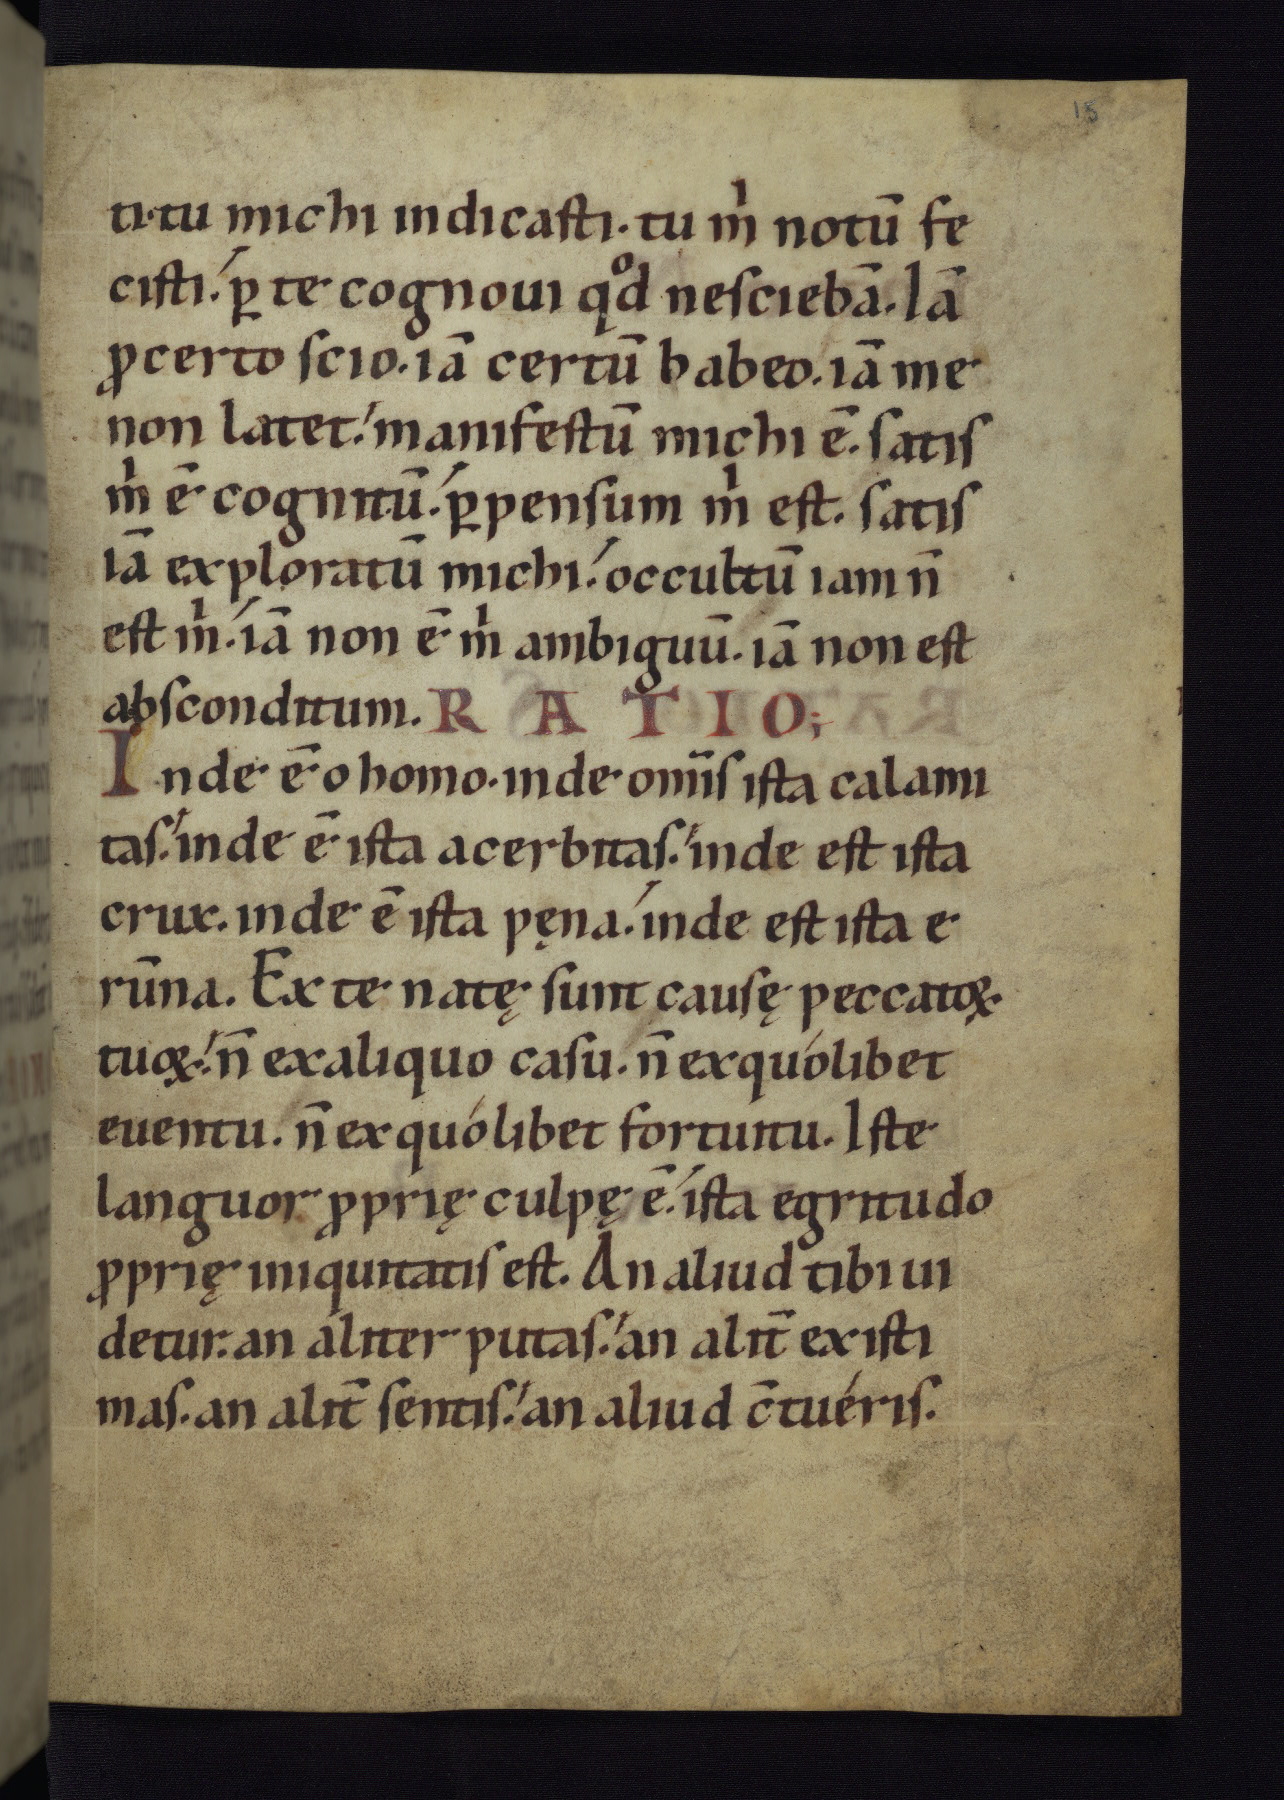 15
ti·tu michi indicasti· tu m̍ notū fe
cisti·́ ꝑ te cognoui qͦd nesciebā· Iā
ꝓcerto scio· iā certū habeo· iā me
non latet·́ manifestū michi ē· satis
m̍ ē cognitū·́ ꝑpensum m̍ est· satis
iā exploratū michi·́ occultū iam n̄
est m̍·́ iā non ē m̍ ambiguū· iā non est
absconditum. RATIO;
Inde ē o homo· inde om̄is ista calami
tas·́ inde ē ista acerbitas·́ inde est ista
crux· inde ē ista pęna·́ inde est ista e
rūna. Ex te natę sunt causę peccatoꝝ
tuoꝝ·́ n̄ ex aliquo casu· n̄ ex quólibet
euentu· n̄ ex quólibet fortuitu. Iste
languor ꝓprię culpę ē·́ ista egritudo
ꝓprię iniquitatis est. An aliud tibi ui
detur· an aliter putas·́ an alit̄ existi
mas· an alit̄ sentis·́ an aliud c̄tuéris.